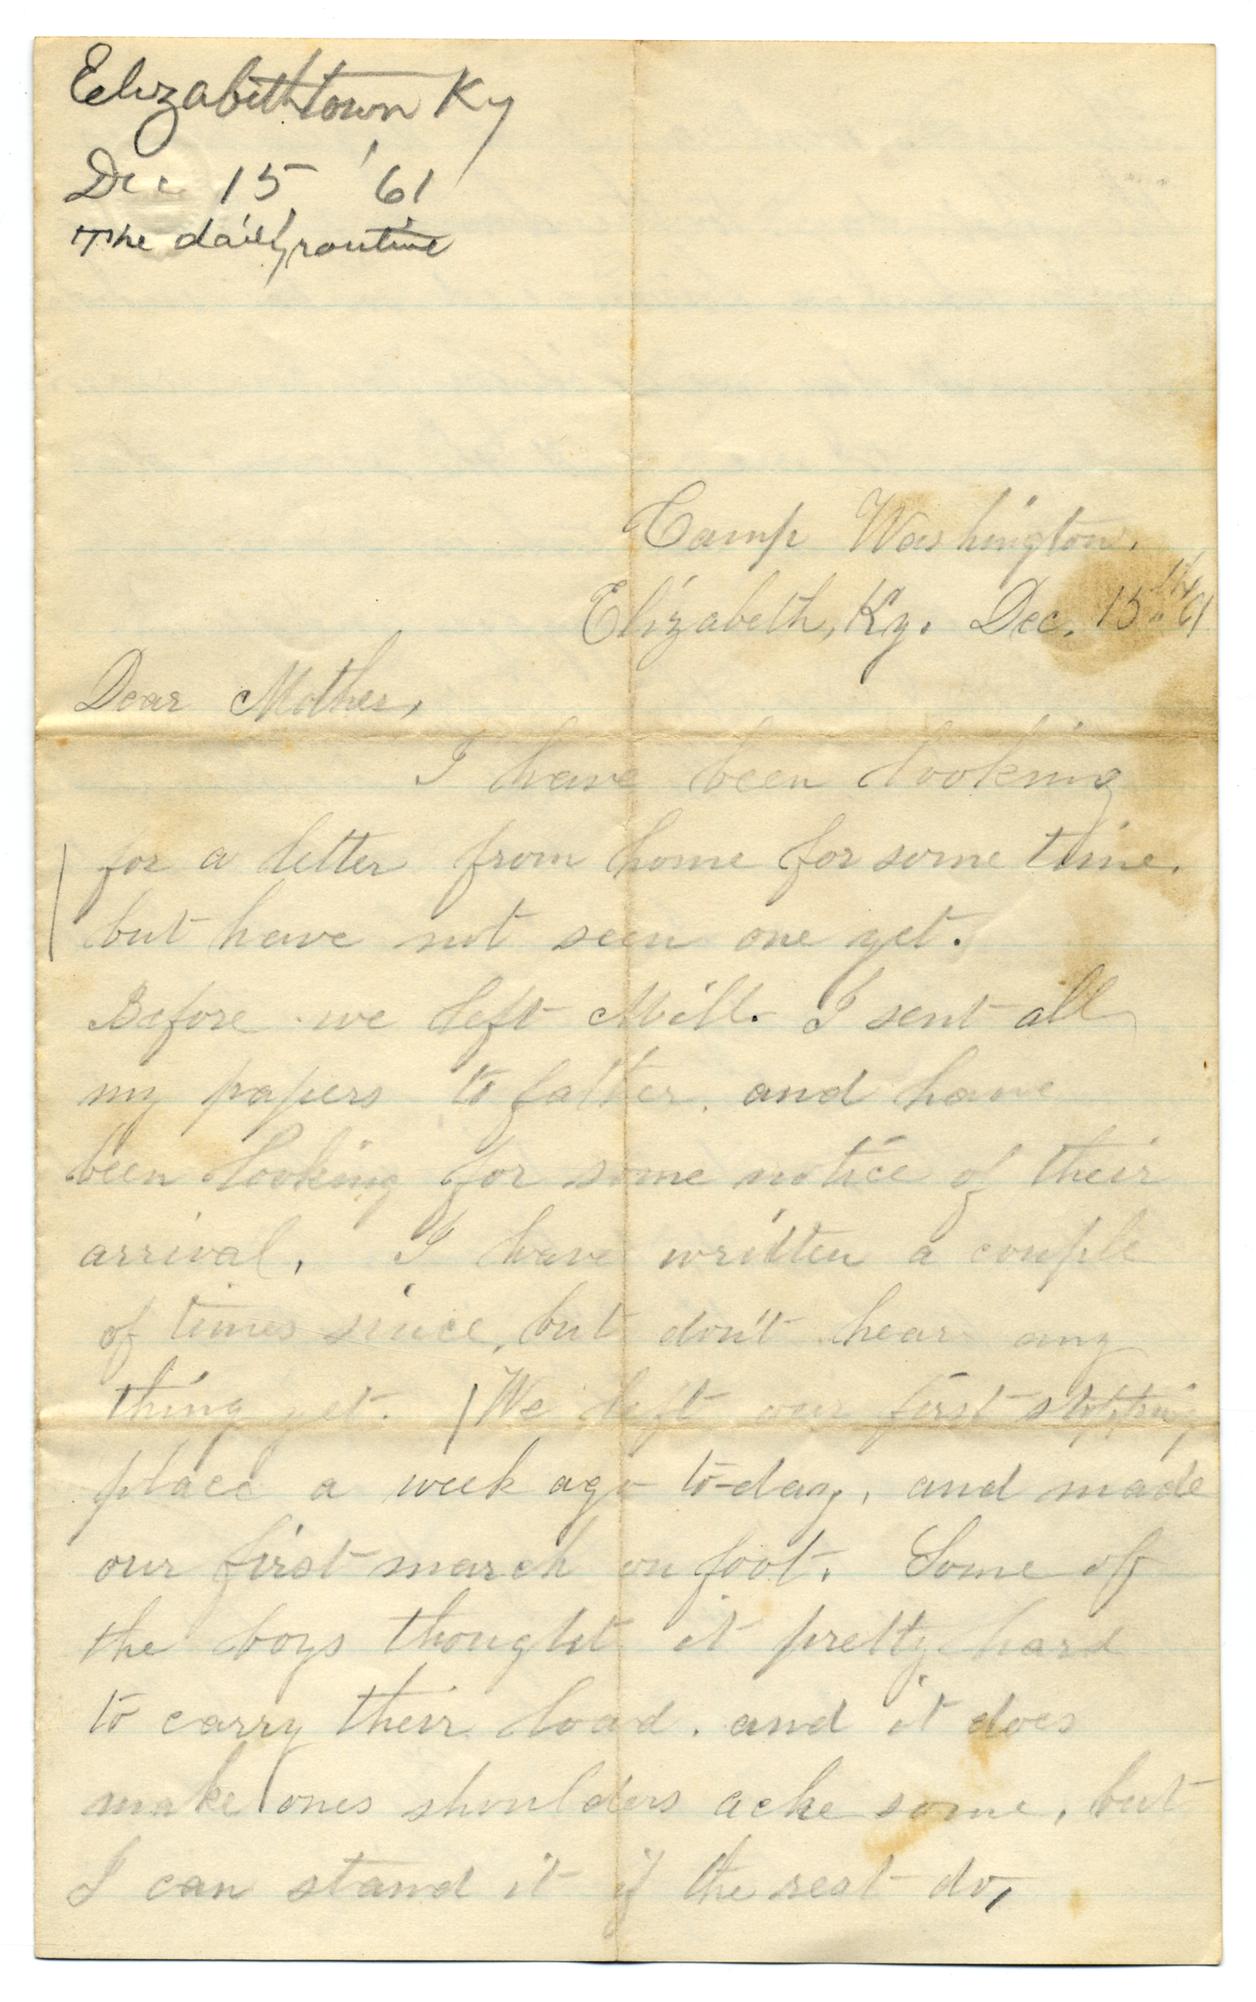 Elizabethtown Ky
Dec 15 '61
The daily routine
Camp Washington.
Elizabeth, Ky. Dec. 15th 61
Dear Mother,
I have been looking
for a letter from home for some time.
but have not seen one yet.
Before we left Mill. I sent all
my papers to father. and have
been looking for some notice of their
arrival. I have written a couple
of times since, but don't hear any
thing yet. We left our first stopping
place a week ago to-day, and made
our first march on foot. Some of
the boys thought it pretty hard
to carry their load. and it does
make ones shoulders ache some, but
I can stand it if the rest do,